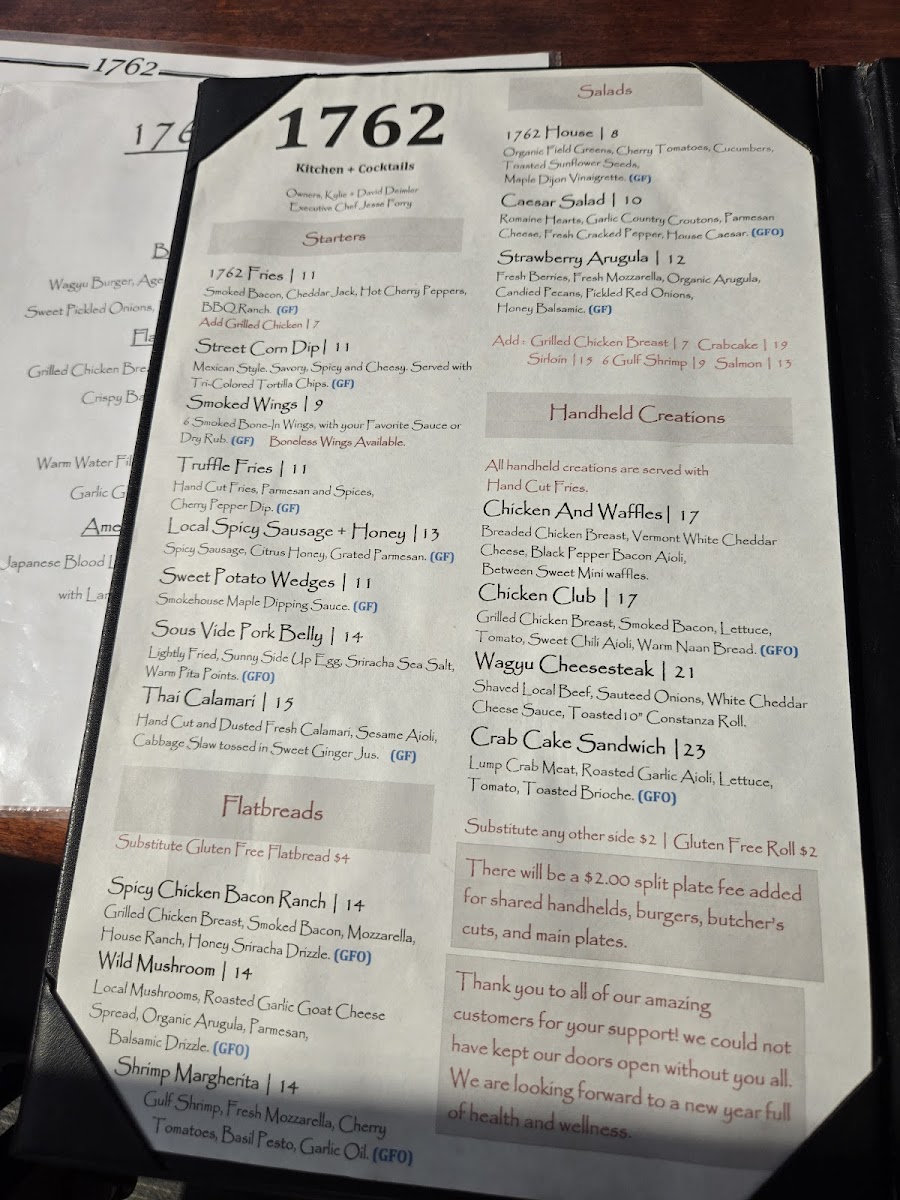 1762
176
B
Wagyu Burger, Age
Sweet Pickled Onions,
Fla
Grilled Chicken Bre
Crispy Ba
Warm Water Fil
Garlic G
Ame
Japanese Blood
with Lar
1762
Kitchen + Cocktails
Owners, Kylie + David Deimler
Executive Chef Jesse Porry
Starters
1762 Fries | 11
Smoked Bacon, Cheddar Jack, Hot Cherry Peppers,
BBQ Ranch. (GF)
Add Grilled Chicken | 7
Street Corn Dip | 11
Mexican Style. Savory, Spicy and Cheesy. Served with
Tri-Colored Tortilla Chips. (GF)
Smoked Wings | 9
6 Smoked Bone-In Wings, with your Favorite Sauce or
Dry Rub. (GF) Boneless Wings Available.
Truffle Fries | 11
Hand Cut Fries, Parmesan and Spices,
Cherry Pepper Dip. (GF)
Local Spicy Sausage + Honey | 13
Spicy Sausage, Citrus Honey, Grated Parmesan. (GF)
Sweet Potato Wedges | 11
Smokehouse Maple Dipping Sauce. (GF)
Sous Vide Pork Belly | 14
Lightly Fried, Sunny Side Up Egg, Sriracha Sea Salt,
Warm Pita Points. (GFO)
Thai Calamari | 15
Hand Cut and Dusted Fresh Calamari, Sesame Aioli,
Cabbage Slaw tossed in Sweet Ginger Jus. (GF)
Flatbreads
Substitute Gluten Free Flatbread $4
Spicy Chicken Bacon Ranch | 14
Grilled Chicken Breast, Smoked Bacon, Mozzarella,
House Ranch, Honey Sriracha Drizzle. (GFO)
Wild Mushroom | 14
Local Mushrooms, Roasted Garlic Goat Cheese
Spread, Organic Arugula, Parmesan,
Balsamic Drizzle. (GFO)
Shrimp Margherita | 14
Gulf Shrimp, Fresh Mozzarella, Cherry
Tomatoes, Basil Pesto, Garlic Oil. (GFO)
Salads
1762 House | 8
Organic Field Greens, Cherry Tomatoes, Cucumbers,
Toasted Sunflower Seeds,
Maple Dijon Vinaigrette. (GF)
Caesar Salad | 10
Romaine Hearts, Garlic Country Croutons, Parmesan
Cheese, Fresh Cracked Pepper, House Caesar. (GFO)
Strawberry Arugula | 12
Fresh Berries, Fresh Mozzarella, Organic Arugula,
Candied Pecans, Pickled Red Onions,
Honey Balsamic. (GF)
Add: Grilled Chicken Breast | 7 Crabcake | 19
Sirloin | 15 6 Gulf Shrimp | 9 Salmon | 13
Handheld Creations
All handheld creations are served with
Hand Cut Fries.
Chicken And Waffles | 17
Breaded Chicken Breast, Vermont White Cheddar
Cheese, Black Pepper Bacon Aioli,
Between Sweet Mini waffles.
Chicken Club | 17
Grilled Chicken Breast, Smoked Bacon, Lettuce,
Tomato, Sweet Chili Aioli, Warm Naan Bread. (GFO)
Wagyu Cheesesteak | 21
Shaved Local Beef, Sauteed Onions, White Cheddar
Cheese Sauce, Toasted 10" Constanza Roll.
Crab Cake Sandwich | 23
Lump Crab Meat, Roasted Garlic Aioli, Lettuce,
Tomato, Toasted Brioche. (GFO)
Substitute any other side $2 | Gluten Free Roll $2
There will be a $2.00 split plate fee added
for shared handhelds, burgers, butcher's
cuts, and main plates.
Thank you to all of our amazing
customers for your support! we could not
have kept our doors open without you all.
We are looking forward to a new year full
of health and wellness.